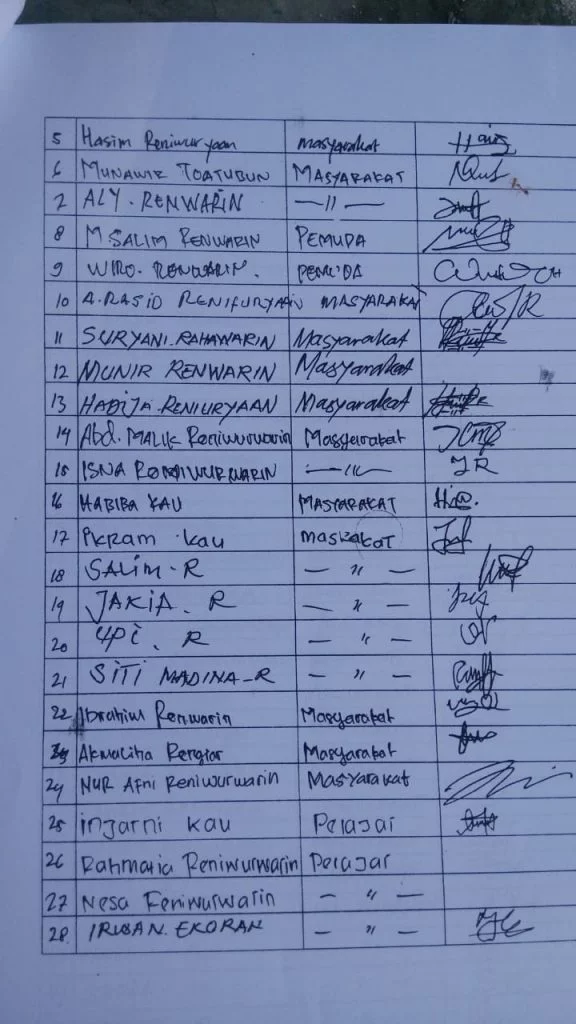 5 Hasim Reniwuryaan masyarakat
6 MUNAWIR TOATUBUN MASYARAKAT
7 ALY. RENWARIN —〃—
8 M SALIM RENWARIN PEMUDA
9 WIRO. RENWARIN. PEMUDA
10 A. RASID RENIFURYAAN MASYARAKAT
11 SURYANI. RAHAWARIN Masyarakat
12 MUNIR RENWARIN Masyarakat
13 HADIJA. RENIURYAAN Masyarakat
14 Abd. MALIK Reniwurwarin Masyarakat
15 ISNA RENIWURWARIN —〃—
16 HABIBA KAU MASYARAKAT
17 kau
18 SALIM. R — 〃 —
19 JAKIA. R — 〃 —
20 UPI. R — 〃 —
21 SITI MADINA-R — 〃 —
22 Ibrahim Renwarin Masyarakat
23 Akmaliha Masyarakat
24 NUR Afni Reniwurwarin Masyarakat
25 injarni kau Pelajar
26 Rahmatia Reniwurwarin Pelajar
27 Nesa Reniwurwarin — 〃 —
28. IRWAN. EKORAN — 〃 —